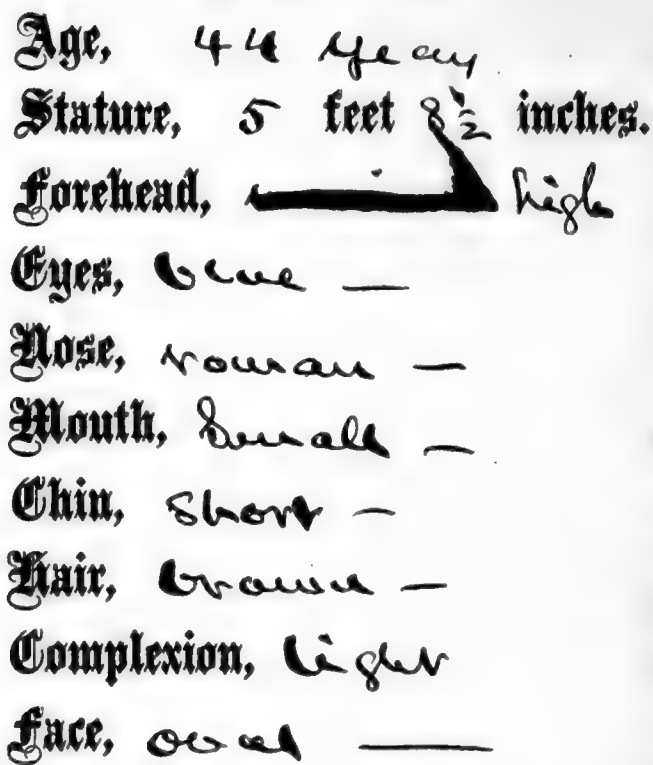 Age, 44 years
Stature, 5 feet 8½ inches.
Forehead, high
Eyes, blue —
Nose, roman —
Mouth, Small —
Chin, Short —
Hair, brown —
Complexion, light
Face, oval —